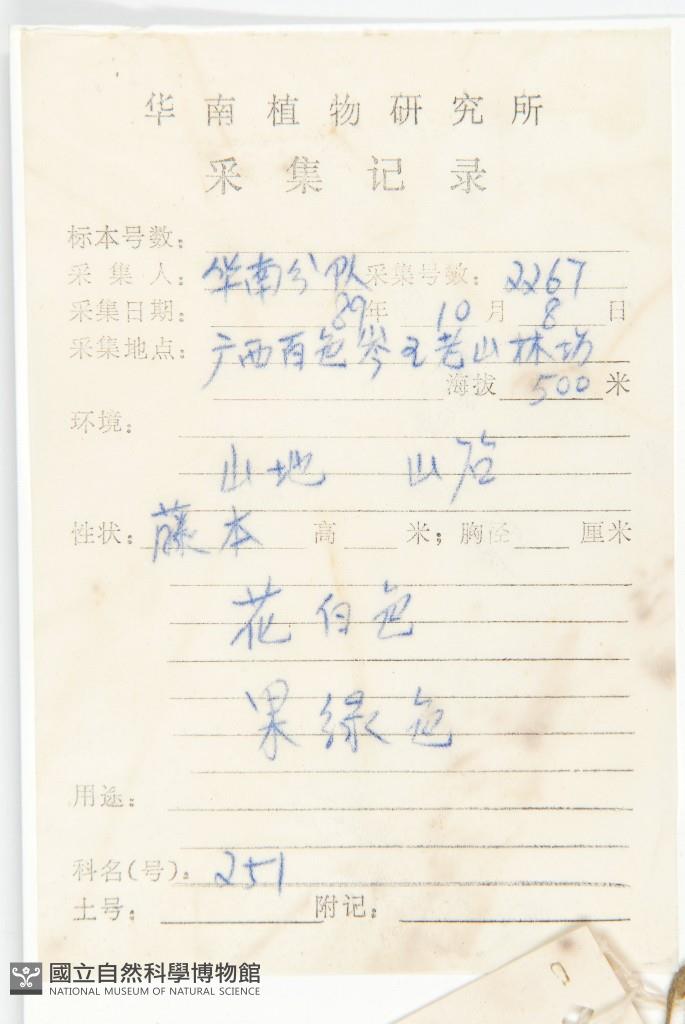 华南植物研究所
采集记录
标本号数：
采集人：华南分队 采集号数：2267
采集日期：89年 10月 8日
采集地点：广西百色岑王老山林场
海拔 500 米
环境：
山地 山谷
性状：藤本 高 米；胸径 厘米
花白色
果绿色
用途：
科名(号)：251
土号： 附记：
國立自然科學博物館
NATIONAL MUSEUM OF NATURAL SCIENCE